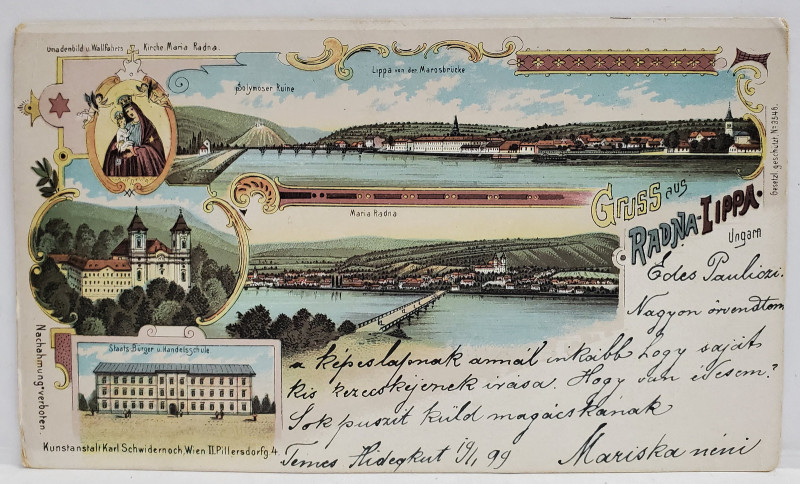 Gnadenbild u. Wallfahrts Kirche Maria Radna.
Solymoser Ruine
Lippa von der Marosbrücke
Gesetzl. geschützt. No 3548.
Maria Radna
Gruss aus
RADNA-LIPPA.
Ungarn
Édes Pauliczi.
Nagyon örvendtem
a képeslapnak annál inkább hogy saját
kis kezecskéjének irása. Hogy van édesem?
Sok puszit küld magácskának
Temes Hidegkut 19/1 99 Mariska néni
Staats-Bürger u. Handelsschule.
Nachahmung verboten.
Kunstanstalt Karl Schwidernoch, Wien II. Pillersdorfg. 4.